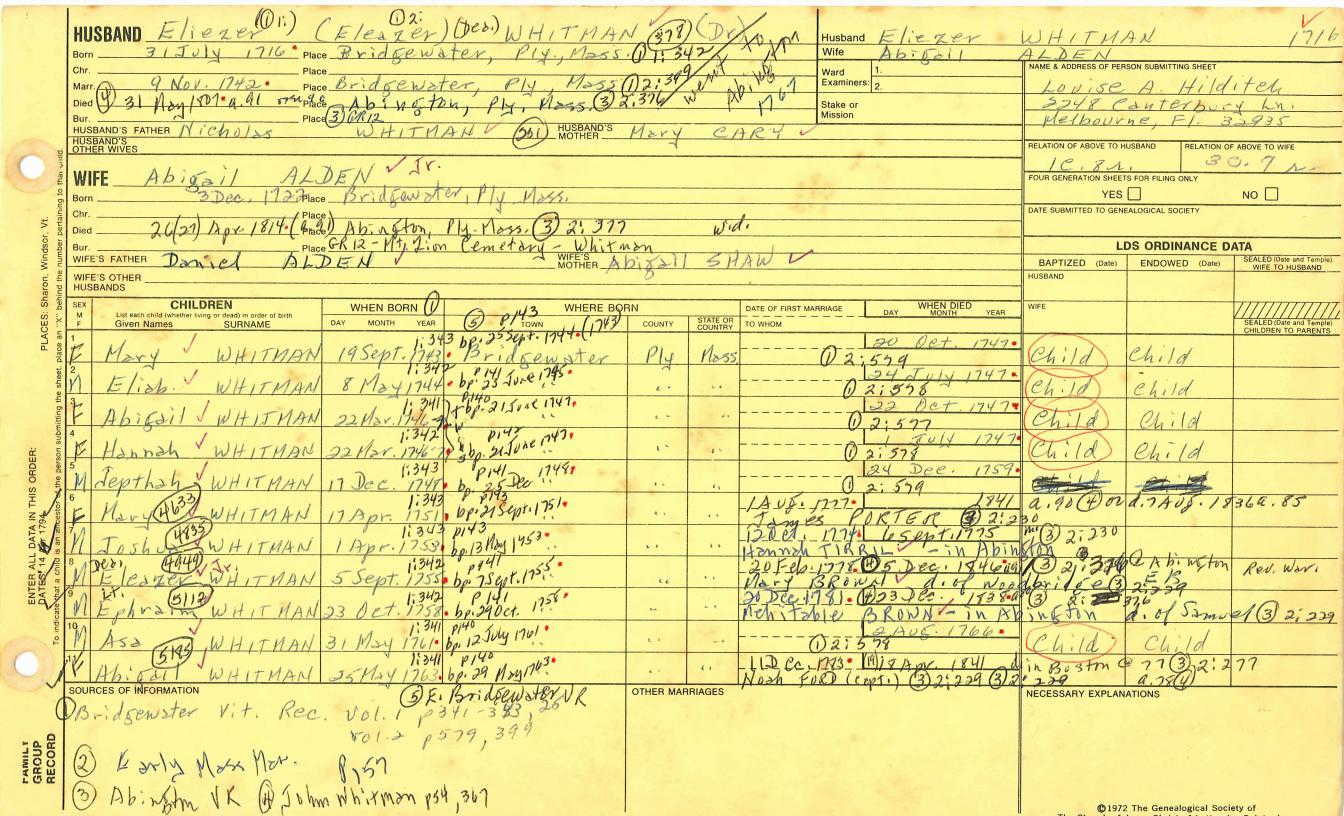 HUSBAND Eliezer ① 1: (Eleazer) ① 2: (Dea.) WHITMAN 378 (Dr)
Born 31 July 1716 Place Bridgewater, Ply., Mass. ① 1:342
Chr. Place
Marr. 9 Nov. 1742 Place Bridgewater, Ply, Mass ① 2:399
Died ④ 31 May 1807 a.91 Place Abington, Ply, Mass. ③ 2:376
Bur. Place ③ GR12
went to Abington 1767
HUSBAND'S FATHER Nicholas WHITMAN 201 HUSBAND'S MOTHER Mary CARY
HUSBAND'S OTHER WIVES
WIFE Abigail ALDEN Jr.
Born 3 Dec. 1722 Place Bridgewater, Ply Mass.
Chr. Place
Died 26(27) Apr. 1814 Place Abington, Ply. Mass. ③ 2:377 wid.
Bur. Place GR12 - Mt. Zion Cemetary - Whitman
WIFE'S FATHER Daniel ALDEN WIFE'S MOTHER Abigail SHAW
WIFE'S OTHER HUSBANDS
Husband Eliezer WHITMAN 1716
Wife Abigail ALDEN
Ward Examiners: 1. 2.
Stake or Mission
NAME & ADDRESS OF PERSON SUBMITTING SHEET
Louise A. Hilditch
2248 Canterbury Ln.
Melbourne, Fl. 32935
RELATION OF ABOVE TO HUSBAND RELATION OF ABOVE TO WIFE
1C.8r. 3C.7r.
FOUR GENERATION SHEETS FOR FILING ONLY
YES NO
DATE SUBMITTED TO GENEALOGICAL SOCIETY
LDS ORDINANCE DATA
BAPTIZED (Date) ENDOWED (Date) SEALED (Date and Temple) WIFE TO HUSBAND
HUSBAND
WIFE
SEALED (Date and Temple) CHILDREN TO PARENTS
SEX M F CHILDREN WHEN BORN ① WHERE BORN DATE OF FIRST MARRIAGE WHEN DIED
List each child (whether living or dead) in order of birth
Given Names SURNAME DAY MONTH YEAR TOWN COUNTY STATE OR COUNTRY TO WHOM DAY MONTH YEAR
⑤ p143
1:343 bp. 25 Sept. 1744 (1743) 20 Oct. 1747
1 F Mary WHITMAN 19 Sept. 1743 Bridgewater Ply Mass ① 2:579 Child Child
1:342 p141 24 July 1747
2 M Eliab WHITMAN 8 May 1744 bp. 23 June 1745 ① 2:578 Child Child
1:341 p140 22 Oct. 1747
3 F Abigail WHITMAN 22 Mar. 1746-7 bp. 21 June 1747 ① 2:577 Child Child
1:342 p142 1 July 1747
4 F Hannah WHITMAN 22 Mar. 1746-7 bp. 21 June 1747 ① 2:578 Child Child
1:343 p141 1748 24 Dec. 1759
5 M Jepthah WHITMAN 17 Dec. 1748 bp. 25 Dec ① 2:579
1:343 p143 1 Aug. 1777 1841 a.90 ④ or d. 7 Aug. 1836 a. 85
6 F Mary 4633 WHITMAN 17 Apr. 1751 bp. 21 Sept. 1751 James PORTER ③ 2:230
1:343 p143 12 Oct. 1774 6 Sept. 1775 ③ 2:230
7 M Joshua 4835 WHITMAN 1 Apr. 1753 bp. 13 May 1753 Hannah TIRRIL - in Abington
1:342 p141 20 Feb. 1778 ④ 5 Dec. 1846 @ Abington Rev. War.
8 M Dea. Eleazer Jr. 4949 WHITMAN 5 Sept. 1755 bp. 7 Sept. 1755 Mary BROWN d. of Woodbridge ③ 2:229
1:342 p141 20 Dec. 1781 ④ 23 Dec. 1838 ③ 2:376
9 M Lt. Ephraim 5112 WHITMAN 23 Oct. 1758 bp. 29 Oct. 1758 Mehitable BROWN - in Abington d. of Samuel ③ 2:229
1:341 p140 2 Aug. 1766
10 M Asa WHITMAN 31 May 1761 bp. 12 July 1761 ① 2:578 Child Child
1:341 p140 11 Dec. 1783 18 Apr. 1841 in Boston @ 77 ③ 2:277
F Abigail 5185 WHITMAN 25 May 1763 bp. 29 May 1763 Noah FORD (cept.) ③ 2:229 ③ 2:229 a.78 ④
SOURCES OF INFORMATION OTHER MARRIAGES NECESSARY EXPLANATIONS
⑤ E. Bridgewater VR
① Bridgewater Vit. Rec. Vol. 1 p341-343,
Vol. 2 p579, 399
② Early Mass Mar. p,57
③ Abington VR ④ John Whitman p54, 367
PLACES: Sharon, Windsor, Vt.
ENTER ALL DATA IN THIS ORDER:
DATES: 14 1794
FAMILY GROUP RECORD
©1972 The Genealogical Society of